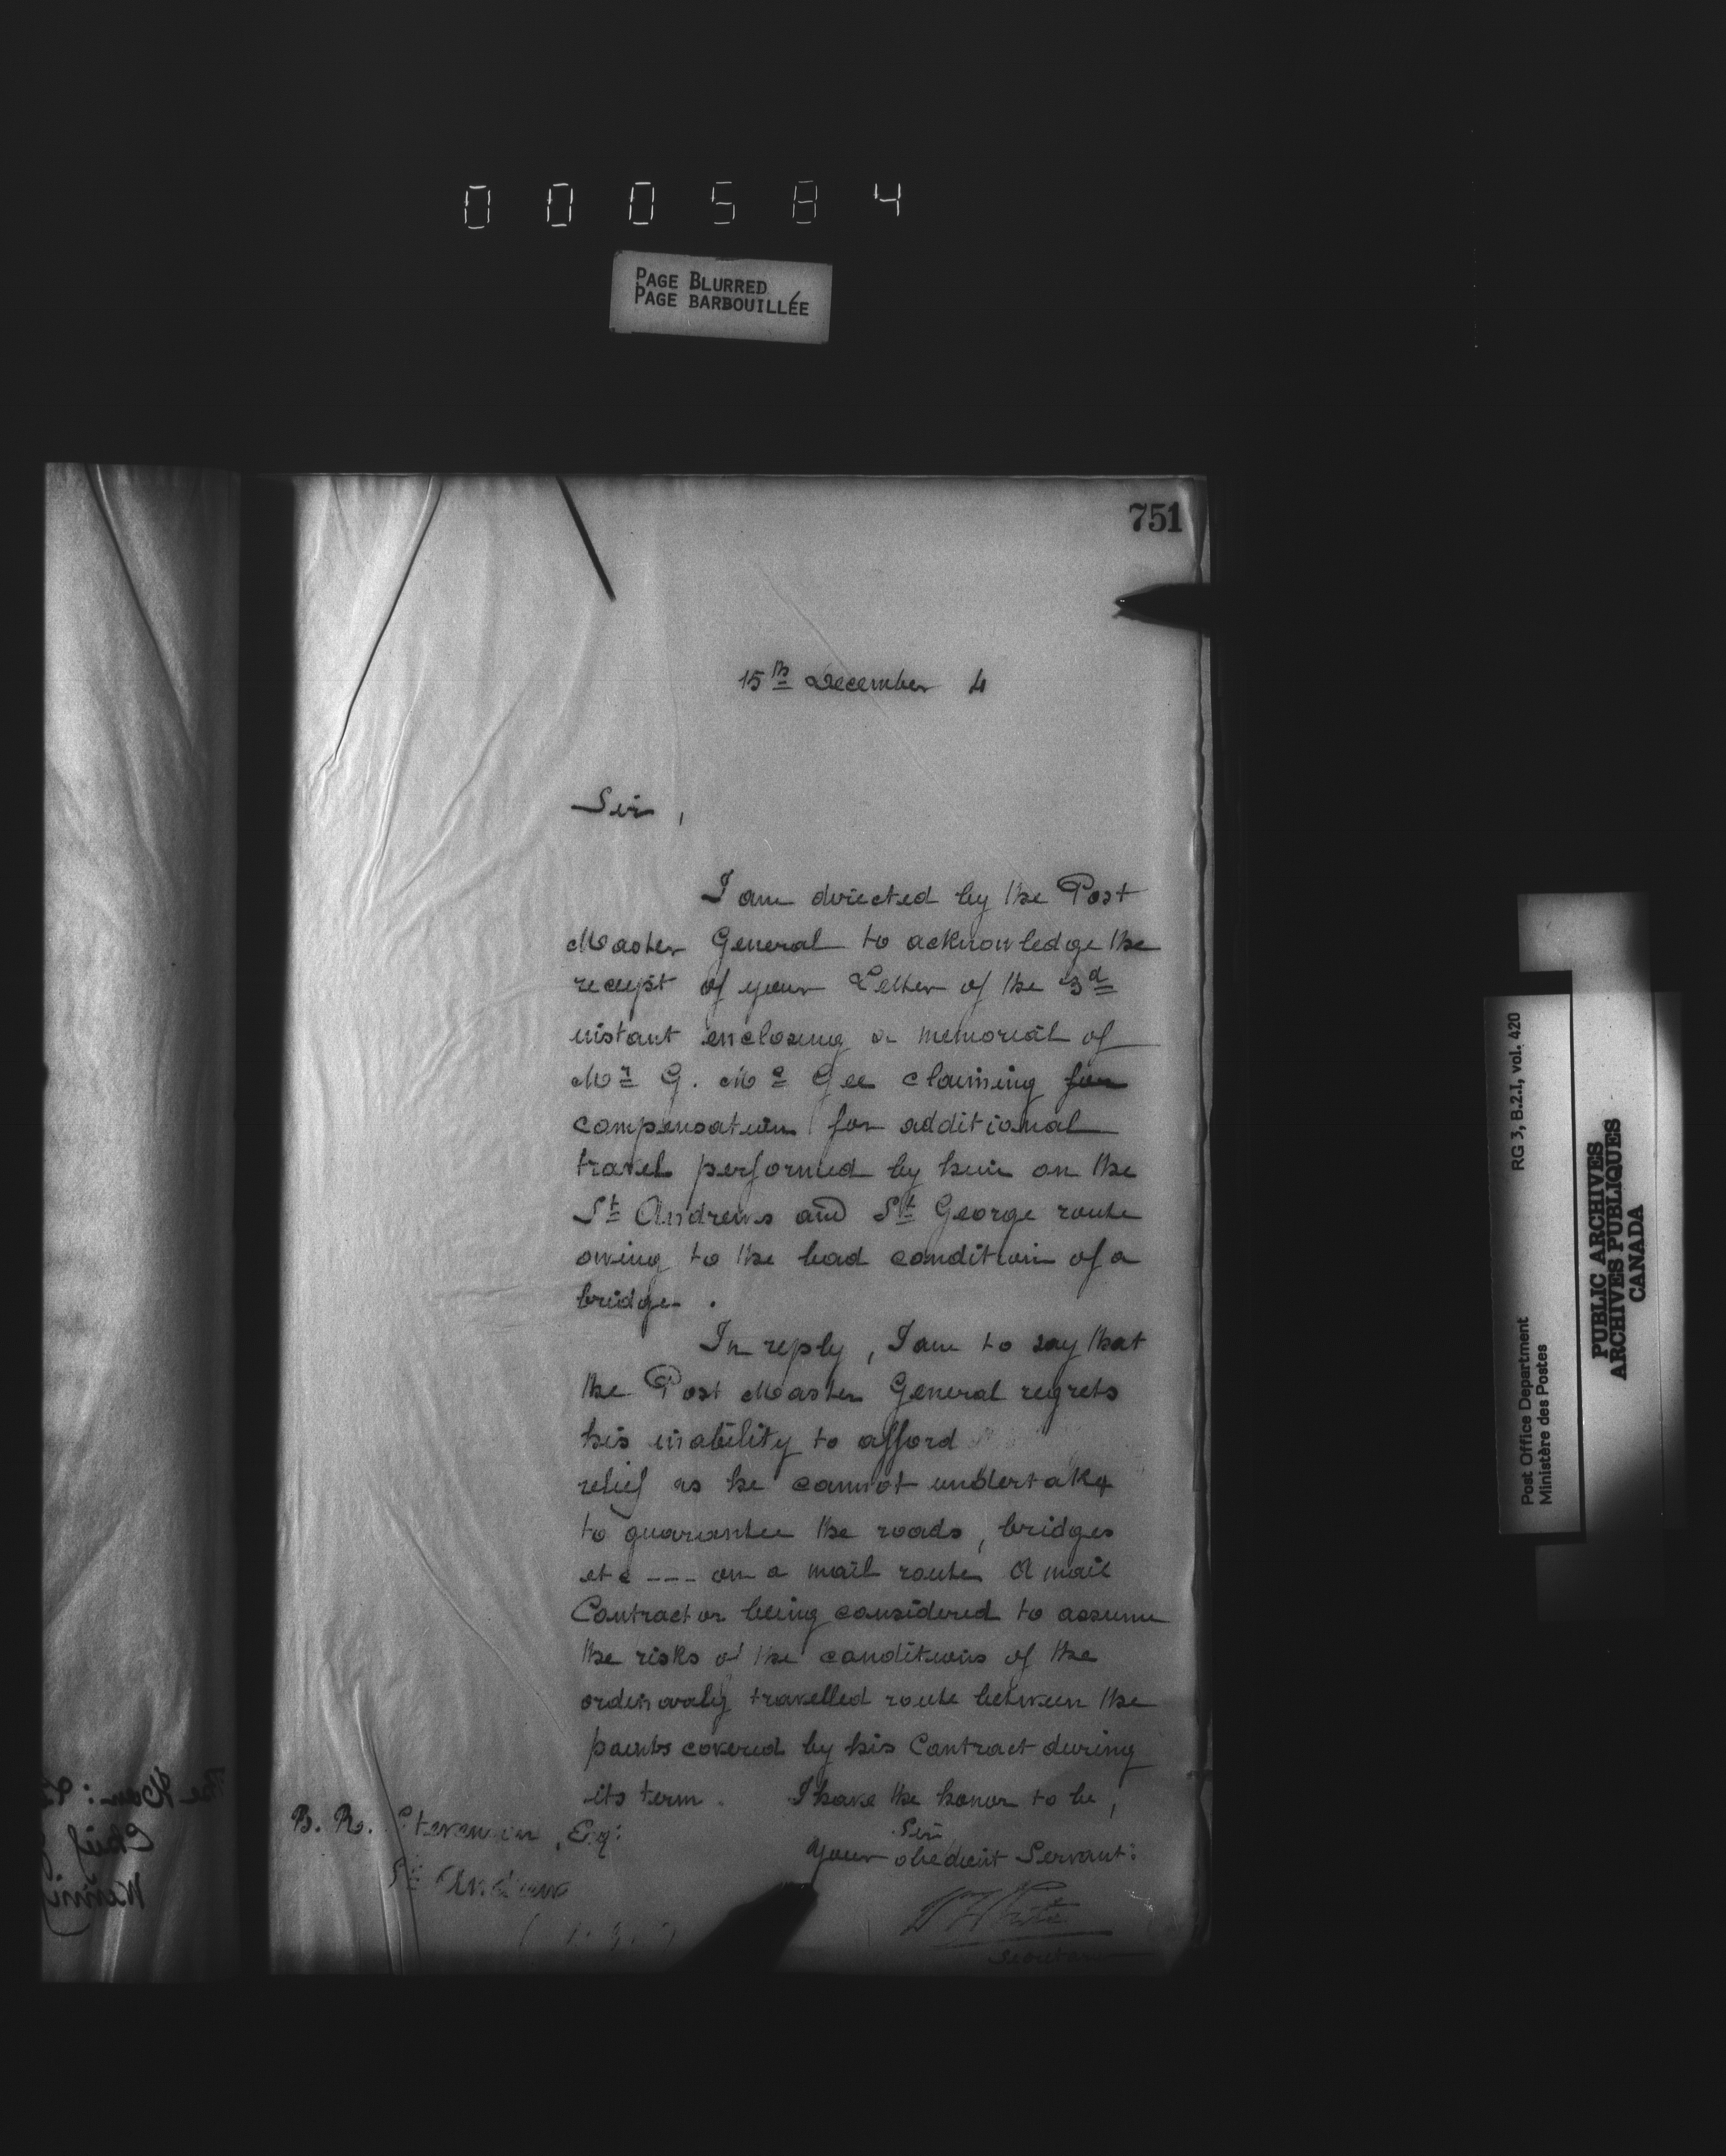 000584
PAGE BLURRED
PAGE BARBOUILLÉE
751
15th December 4
Sir,
I am directed by the Post
Master General to acknowledge the
receipt of your Letter of the 3d
instant enclosing a memorial of
Mr G. Mc Gee claiming for
compensation for additional
travel performed by him on the
St Andrews and St George route
owing to the bad condition of a
bridge.
In reply, I am to say that
the Post Master General regrets
his inability to afford
relief as he cannot undertake
to guarantee the roads, bridges
etc --- on a mail route A mail
Contractor being considered to assume
the risks of the conditions of the
ordinarily travelled route between the
points covered by his Contract during
its term. I have the honor to be,
Sir
Your obedient Servant:
W White
Secretary
B. R. Stevenson, Esq:
St Andrews
The Hon:
Chief
RG 3, B.2.I, vol. 420
Post Office Department
Ministère des Postes
PUBLIC ARCHIVES
ARCHIVES PUBLIQUES
CANADA